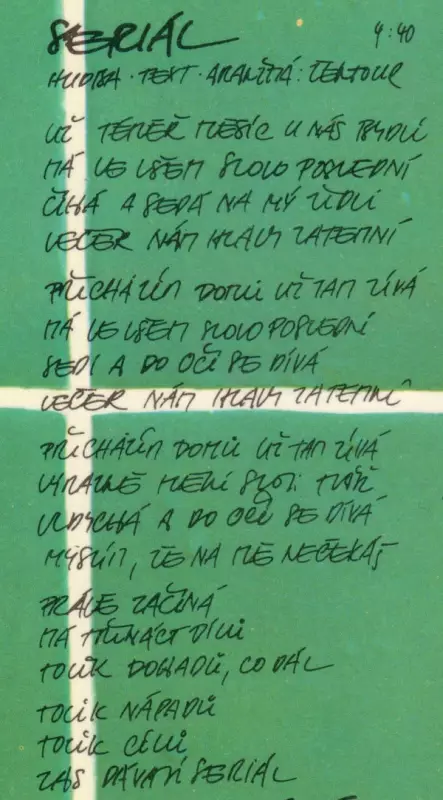 SERIÁL 4:40
HUDBA · TEXT · ARANŽMÁ: ČERTOUR
UŽ TÉMĚŘ MĚSÍC U NÁS BYDLÍ
MÁ VE VŠEM SLOVO POSLEDNÍ
ČÍHÁ A SEDÁ NA MÝ ŽIDLI
VEČER NÁM HLAVY ZATEMNÍ
PŘICHÁZÍM DOMŮ UŽ TAM ZÍVÁ
MÁ VE VŠEM SLOVO POSLEDNÍ
SEDÍ A DO OČÍ SE DÍVÁ
VEČER NÁM HLAVY ZATEMNÍ
PŘICHÁZÍM DOMŮ UŽ TAM ZÍVÁ
VÝRAZNĚ MĚNÍ SVOJI TVÁŘ
VZDYCHÁ A DO OČÍ SE DÍVÁ
MYSLÍM, ŽE NA MĚ NEČEKÁŠ
PRÁVĚ ZAČÍNÁ
MÁ TŘINÁCT DÍLŮ
TOLIK DOHADŮ, CO DÁL
TOLIK NÁPADŮ
TOLIK CÍLŮ
ZAS DÁVAJÍ SERIÁL